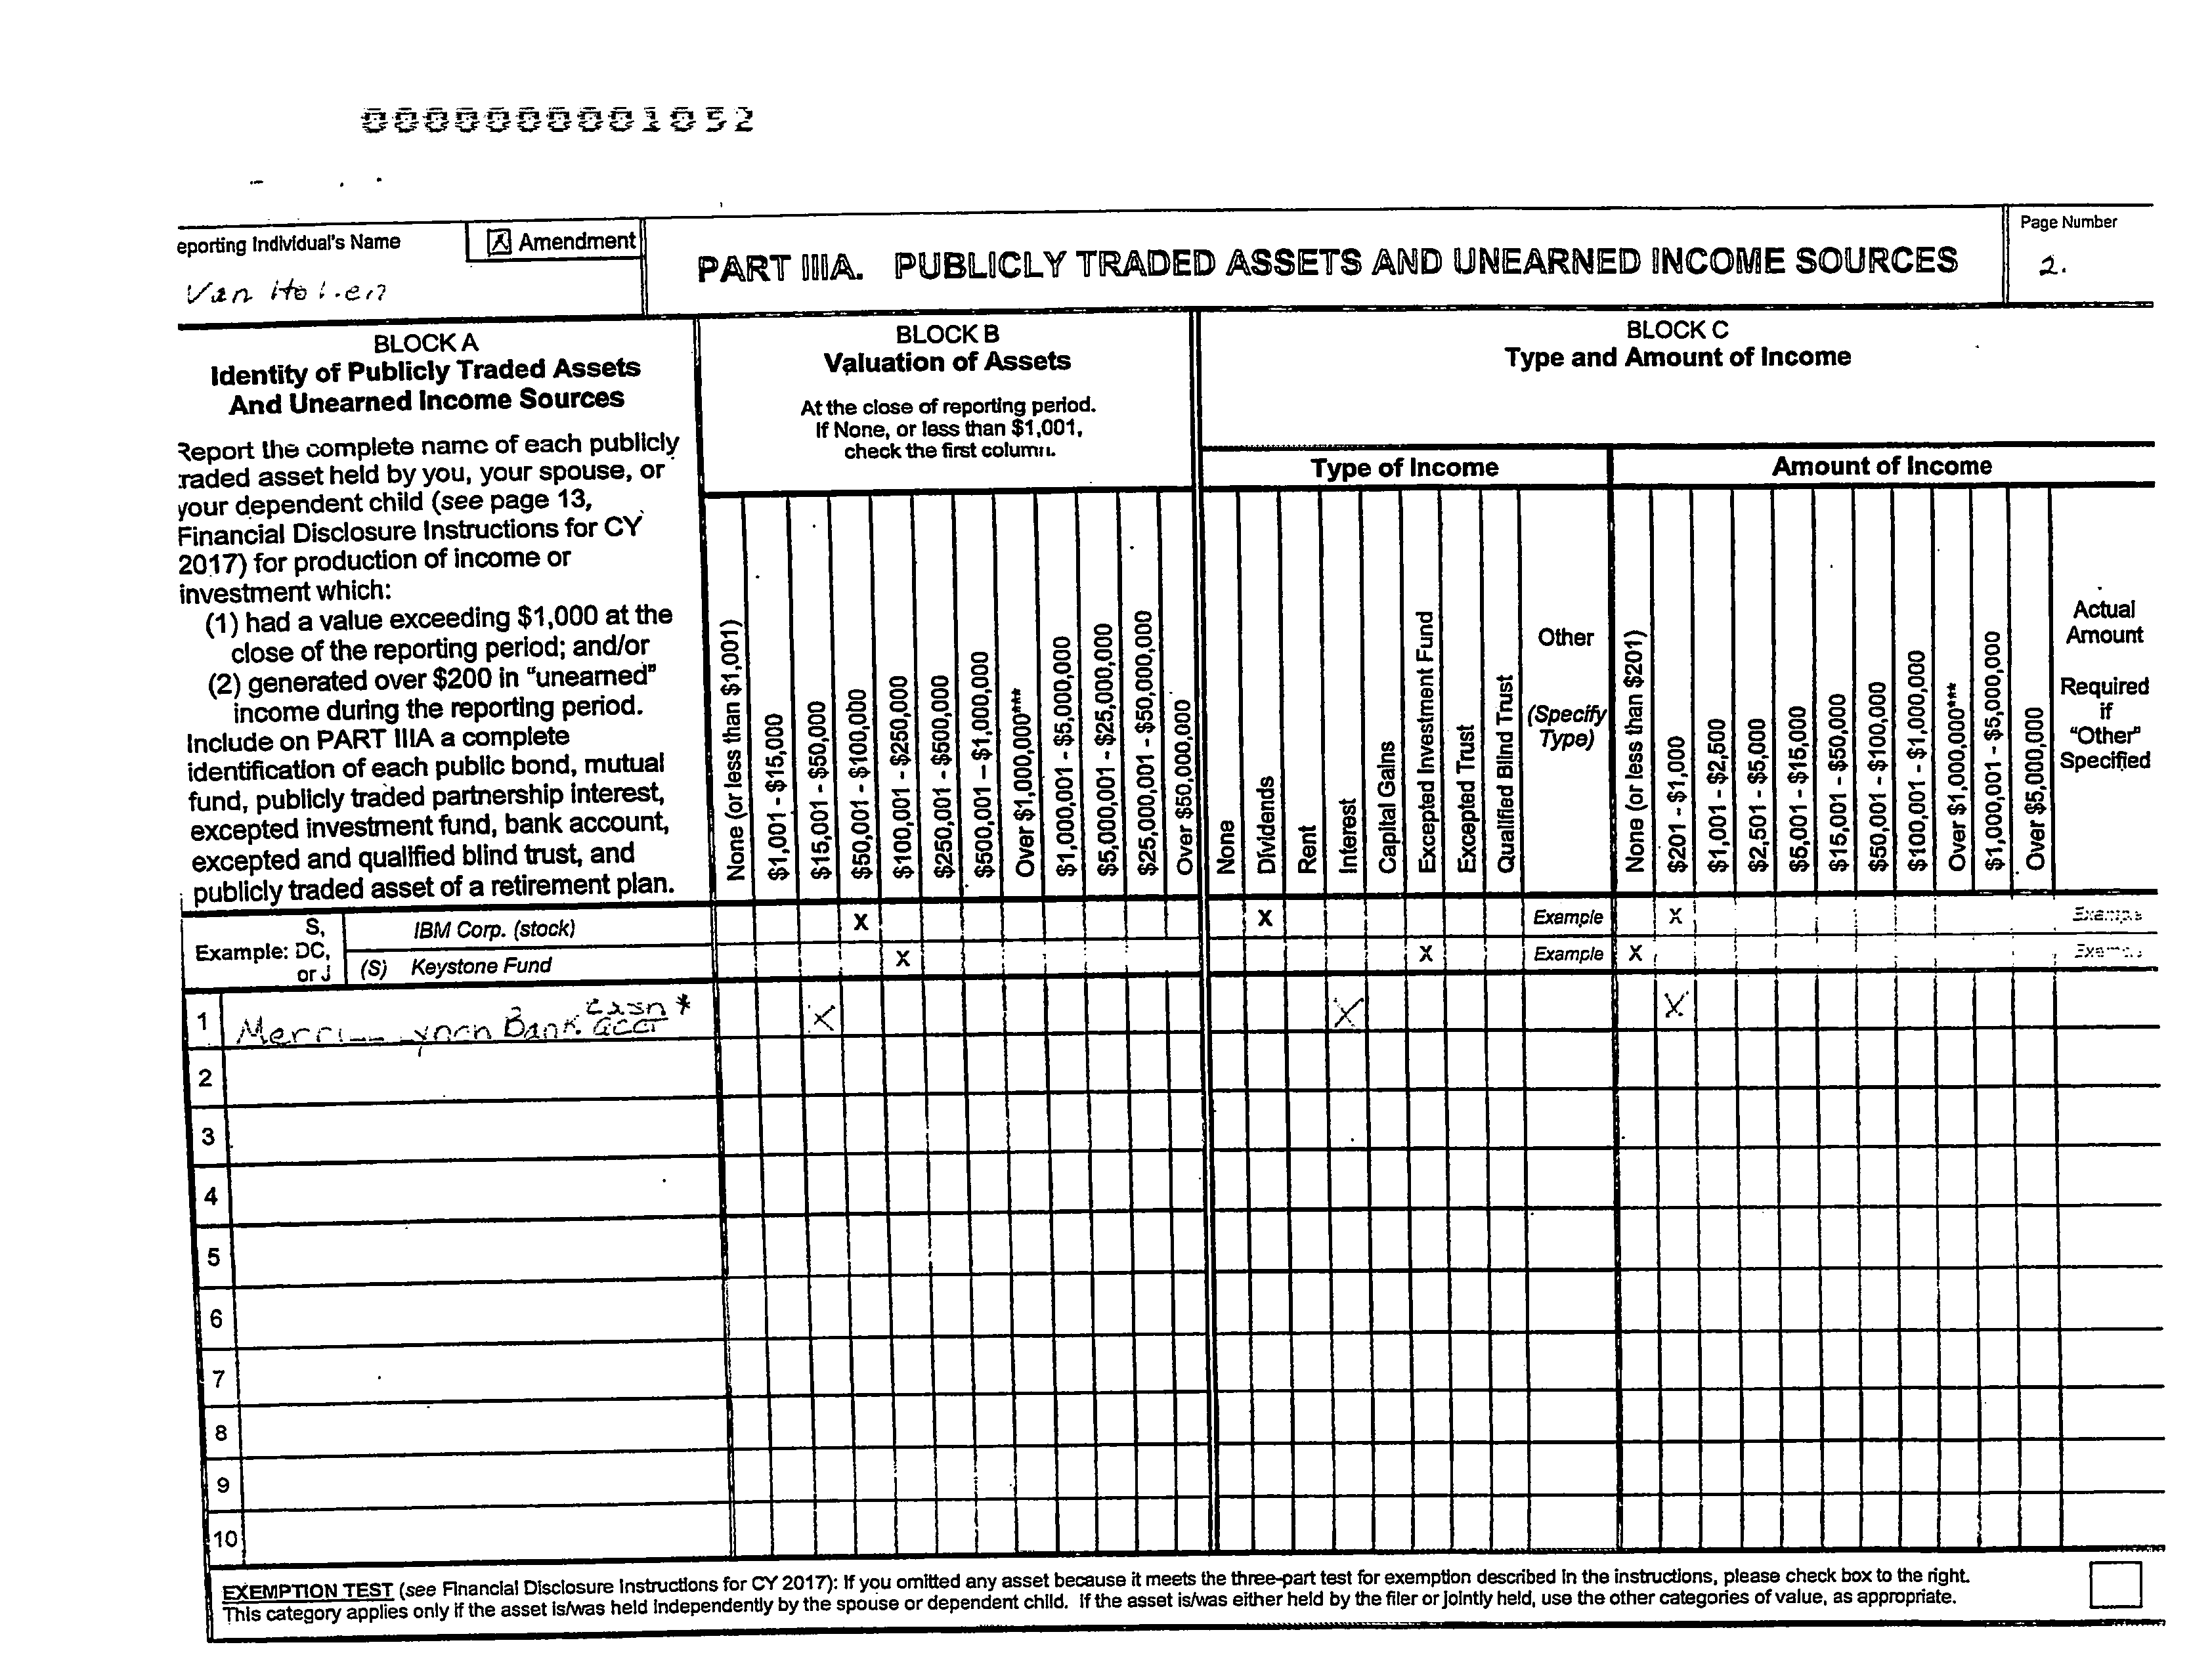 0000000001052
eporting Individual's Name
Amendment
PART IIIA. PUBLICLY TRADED ASSETS AND UNEARNED INCOME SOURCES
Page Number
2.
BLOCK A
Identity of Publicly Traded Assets
And Unearned Income Sources
Report the complete name of each publicly
raded asset held by you, your spouse, or
your dependent child (see page 13,
Financial Disclosure Instructions for CY
2017) for production of income or
investment which:
(1) had a value exceeding $1,000 at the
close of the reporting period; and/or
(2) generated over $200 in "unearned"
income during the reporting period.
Include on PART IIIA a complete
identification of each public bond, mutual
fund, publicly traded partnership interest,
excepted investment fund, bank account,
excepted and qualified blind trust, and
publicly traded asset of a retirement plan.
BLOCK B
Valuation of Assets
At the close of reporting period.
If None, or less than $1,001,
check the first column.
None (or less than $1,001)
$1,001 - $15,000
$15,001 - $50,000
$50,001 - $100,000
$100,001 - $250,000
$250,001 - $500,000
$500,001 – $1,000,000
Over $1,000,000***
$1,000,001 - $5,000,000
$5,000,001 - $25,000,000
$25,000,001 - $50,000,000
Over $50,000,000
BLOCK C
Type and Amount of Income
Type of Income
None
Dividends
Rent
Interest
Capital Gains
Excepted Investment Fund
Excepted Trust
Qualified Blind Trust
Other
(Specify
Type)
Amount of Income
None (or less than $201)
$201 - $1,000
$1,001 - $2,500
$2,501 - $5,000
$5,001 - $15,000
$15,001 - $50,000
$50,001 - $100,000
$100,001 - $1,000,000
Over $1,000,000***
$1,000,001 - $5,000,000
Over $5,000,000
Actual
Amount
Required
if
"Other"
Specified
Example: S, DC, or J
IBM Corp. (stock) X X Example X Example
(S) Keystone Fund X X Example X
1 Bank cash * acct X X X
2
3
4
5
6
7
8
9
10
EXEMPTION TEST (see Financial Disclosure Instructions for CY 2017): If you omitted any asset because it meets the three-part test for exemption described in the instructions, please check box to the right.
This category applies only if the asset is/was held independently by the spouse or dependent child. If the asset is/was either held by the filer or jointly held, use the other categories of value, as appropriate.